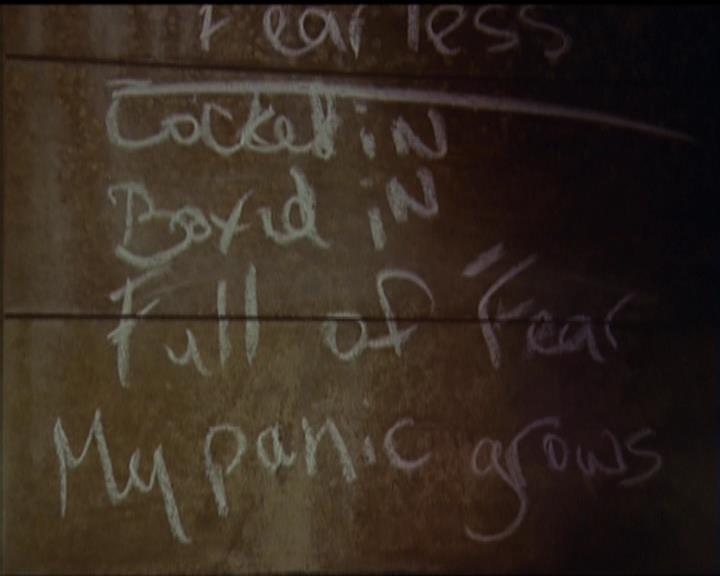 Fearless
Locked in
Boxed in
Full of Fear
My panic grows